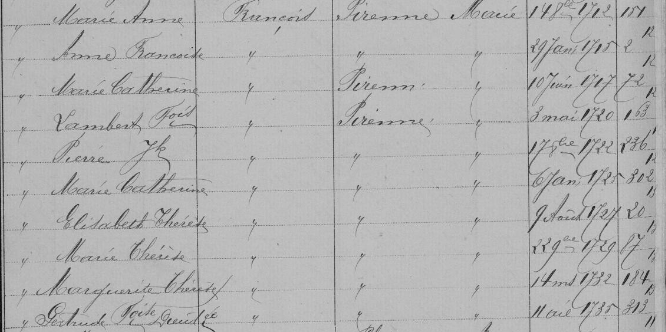 " Marie Anne François Pirenne Marie 14 8bre 1712 151
" Anne Francoise " " " 29 Jan 1715 2
" Marie Catherine " Pirenn: " 10 Juin 1717 72
" Lambert Fçois " Pirenne " 3 mai 1720 163
" Pierre Jh " " " 17 8bre 1722 236
" Marie Catherine " " " 6 Jan 1725 302
" Elisabeth Thérèse " " " 9 Aout 1727 20
" Marie Thérèse " " " 22 9bre 1729 87
" Marguerite Thérèse " " " 14 ms 1732 184
" Gertrude " " " 1735 313